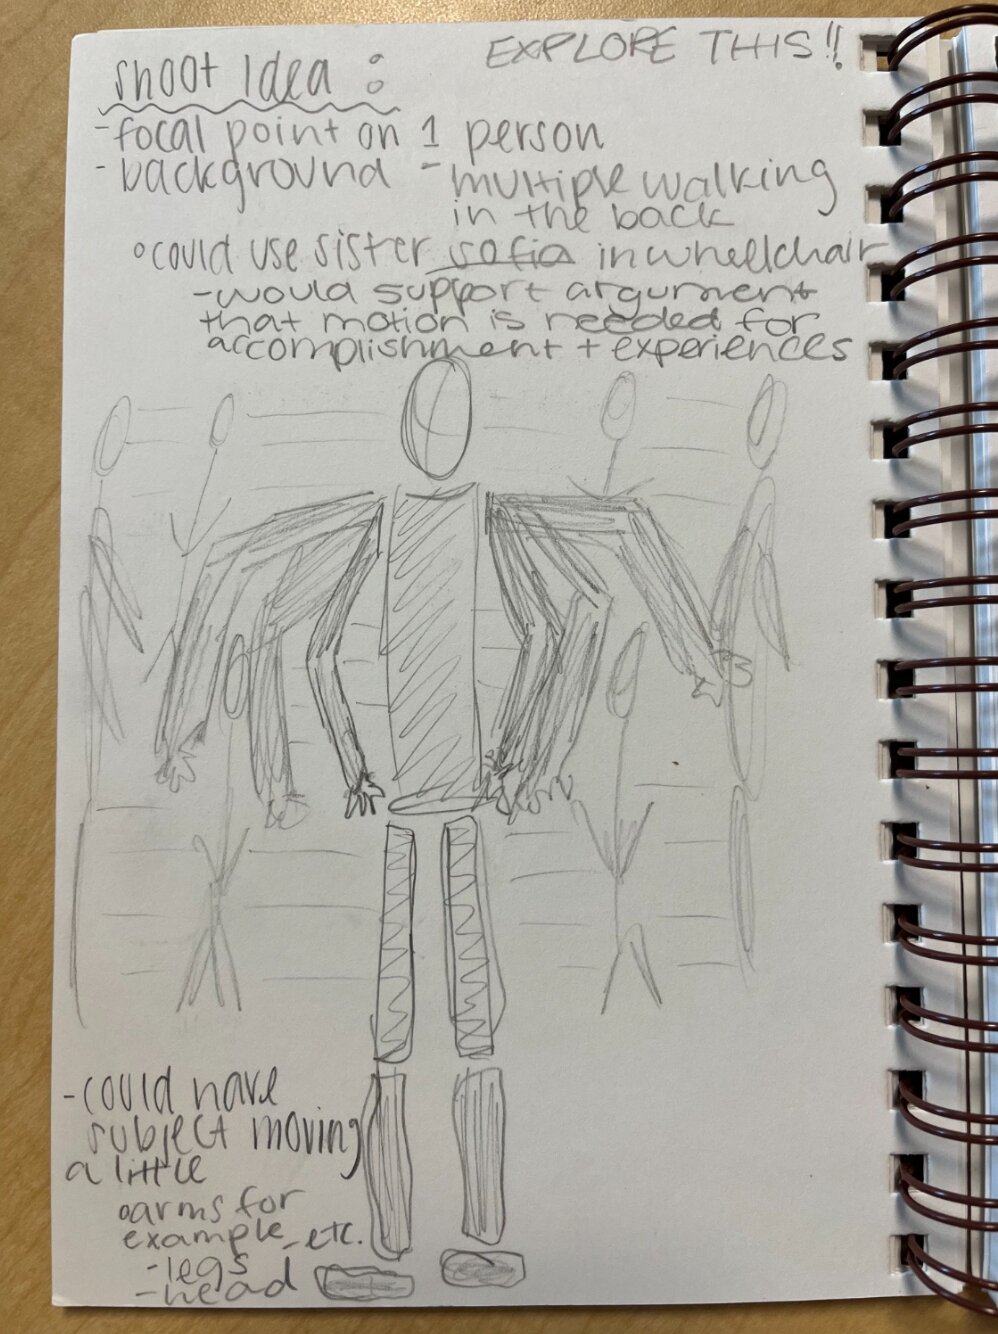 shoot Idea :
EXPLORE THIS!!
- focal point on 1 person
- background - multiple walking
in the back
°could use sister sofia in wheelchair
- would support argument
that motion is needed for
accomplishment + experiences
- could have
subject moving
a little
°arms for
example, etc.
- legs
- head